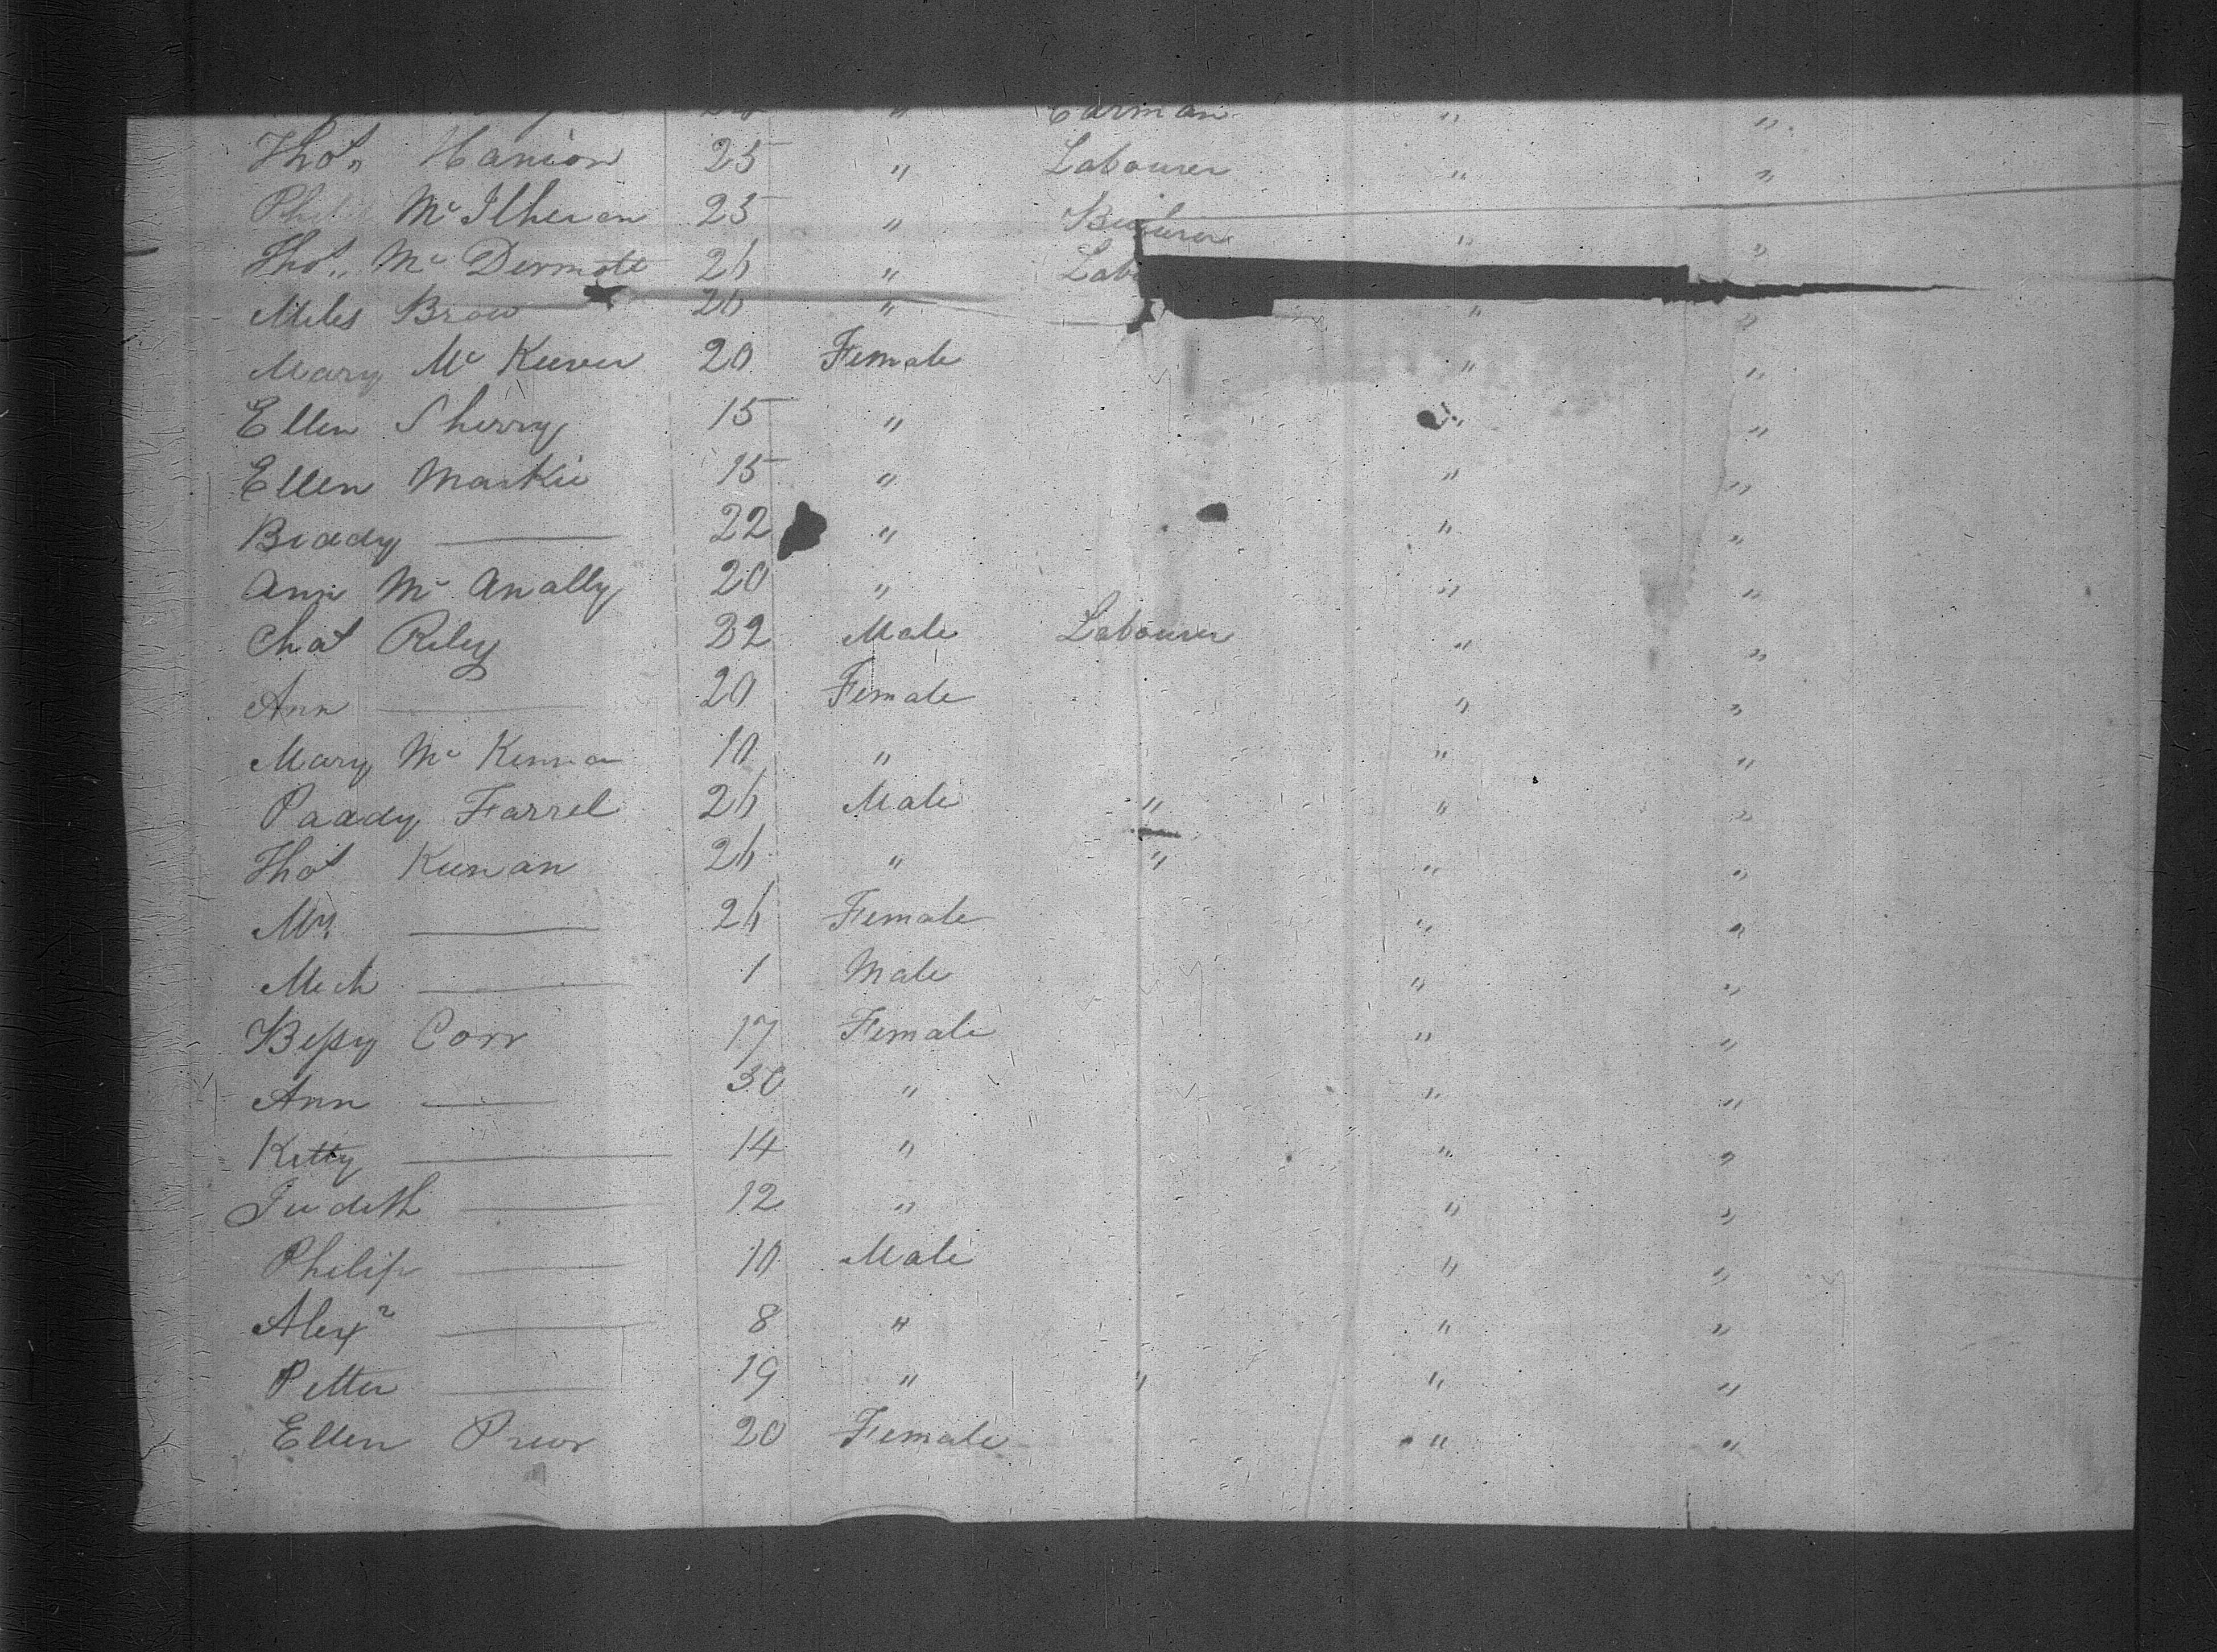 " Carman " "
Thos. Hanion 25 " Labourer " "
Philip McIlheran 25 " " "
Thos. McDermott 26 " Lab "
Miles Brow 26 " " "
Mary McKeever 20 Female " "
Ellen Sherry 15 " " "
Ellen Markie 15 " " "
Biddy —— 22 " " "
Ann McAnally 20 " " "
Chas Riley 32 Male Labourer " "
Ann —— 20 Female " "
Mary McKenna 10 " " "
Paddy Farrel 26 Male " " "
Thos Keenan 26 " " " "
—— 26 Female " "
Mich —— 1 Male " "
Bessy Corr 17 Female " "
Ann —— 30 " " "
Kitty —— 14 " " "
Judith —— 12 " " "
Philip —— 10 Male " "
Alexr —— 8 " " "
Petter —— 19 " " " "
Ellen Prior 20 Female " "